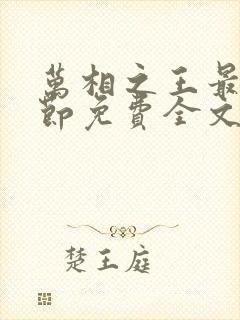 萬相之王最
節免費全文
楚王庭